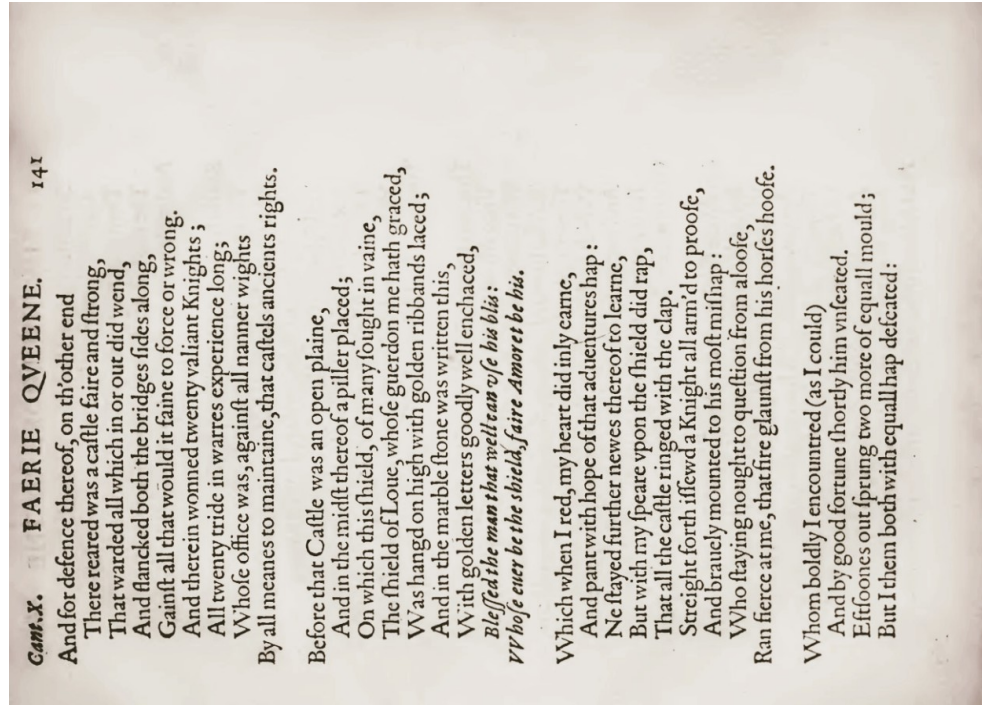 Cant.X. FAERIE QVEENE. 141
And for defence thereof, on th'other end
There reared was a caſtle faire and ſtrong,
That warded all which in or out did wend,
And flancked both the bridges ſides along,
Gainſt all that would it faine to force or wrong.
And therein wonned twenty valiant Knights;
All twenty tride in warres experience long;
Whoſe office was, againſt all manner wights
By all meanes to maintaine, that caſtels ancients rights.
Before that Caſtle was an open plaine,
And in the midſt thereof a piller placed;
On which this ſhield, of many ſought in vaine,
The ſhield of Loue, whoſe guerdon me hath graced,
Was hangd on high with golden ribbands laced;
And in the marble ſtone was written this,
With golden letters goodly well enchaced,
Bleſſed the man that well can vſe his blis:
VVhoſe euer be the shield, faire Amoret be his.
Which when I red, my heart did inly earne,
And pant with hope of that aduentures hap:
Ne ſtayed further newes thereof to learne,
But with my ſpeare vpon the ſhield did rap,
That all the caſtle ringed with the clap.
Streight forth iſſewd a Knight all arm'd to proofe,
And brauely mounted to his moſt miſhap:
Who ſtaying nought to queſtion from aloofe,
Ran fierce at me, that fire glaunſt from his horſes hoofe.
Whom boldly I encountred (as I could)
And by good fortune ſhortly him vnſeated.
Eftſoones out ſprung two more of equall mould;
But I them both with equall hap defeated: